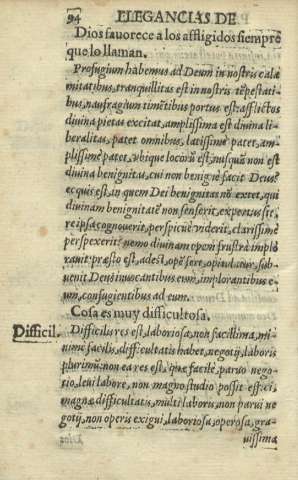 94 ELEGANCIAS DE
Dios fauorece a los affligidos ſiempre
que lo llaman.
Profugium habemus ad Deum in noſtris cala
mitatibus, tranquillitas eſt in noſtris tēpeſtati-
bus, naufragium timētibus portus eſt: afflictos
diuina pietas excitat, ampliſsima eſt diuina li-
beralitas, patet omnibus, latiſsimè patet, am-
pliſsimè patet, vbique locorū eſt, nuſquā non eſt
diuina benignitas, cui non benignè facit Deus?
ecquis eſt, in quem Dei benignitas nō extet, qui
diuinam benignitatē non ſenſerit, expertus ſit,
re ipſa cognouerit, perſpicuè viderit, clariſsimè
perſpexerit? nemo diuinam opem fruſtra implo
rauit: præſto eſt, adeſt, opē fert, opitulatur, ſub-
uenit Deus inuocantibus eum, implorantibus e-
um, confugientibus ad eum.
Coſa es muy difficultoſa.
Difficil. Difficilis res eſt, laborioſa, non facillima, mi-
nimè facilis, difficultatis habet, negotij, laboris
plurimū: non ea res eſt, quæ facilè, paruo nego-
tio, leui labore, non magno ſtudio poſsit effici
magnæ difficultatis, multi laboris, non parui ne
gotij, non operis exigui, laborioſa, operoſa, gra-
uiſsima